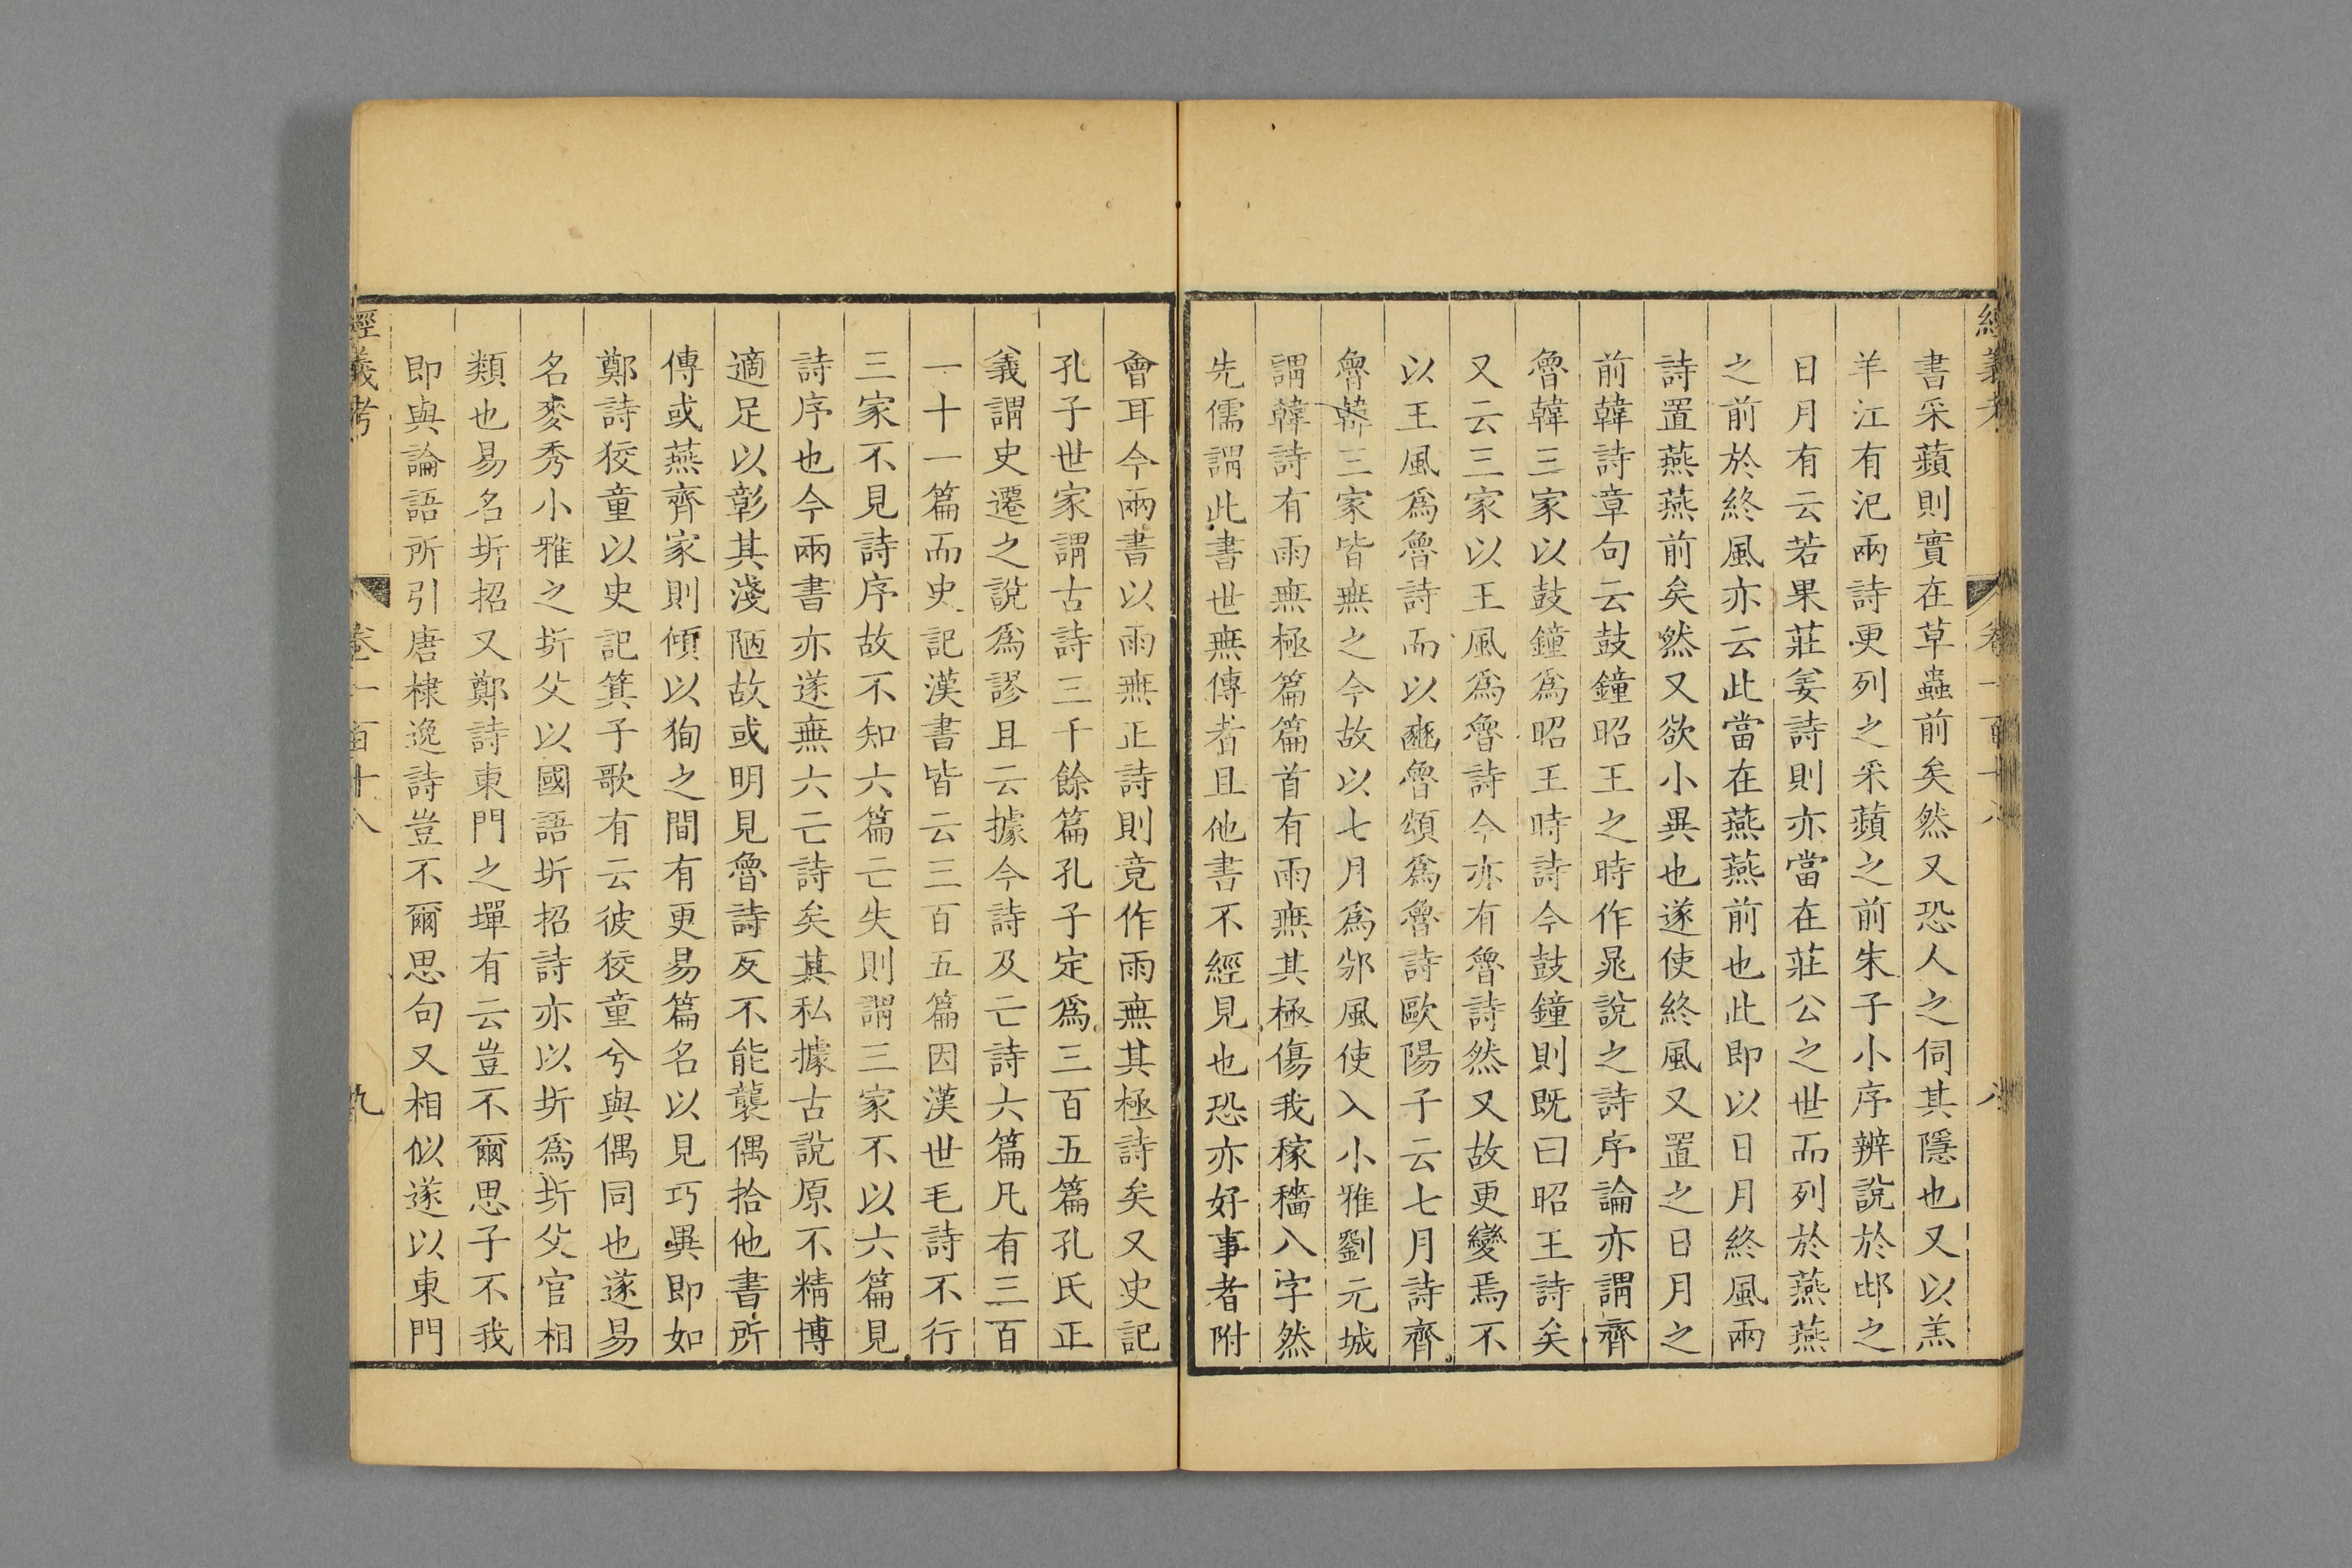 經義考 卷一百十八 八
書采蘋則實在草蟲前矣然又恐人之伺其隱也又以羔
羊江有汜兩詩更列之采蘋之前朱子小序辨說於邶之
日月有云若果莊姜詩則亦當在莊公之世而列於燕燕
之前於終風亦云此當在燕燕前也此即以日月終風兩
詩置燕燕前矣然又欲小異也遂使終風又置之日月之
前韓詩章句云鼓鐘昭王之時作晁說之詩序論亦謂齊
魯韓三家以鼓鐘爲昭王時詩今鼓鐘則既曰昭王詩矣
又云三家以王風爲魯詩今亦有魯詩然又故更變焉不
以王風爲魯詩而以豳魯頌爲魯詩歐陽子云七月詩齊
魯韓三家皆無之今故以七月爲邠風使入小雅劉元城
謂韓詩有雨無極篇篇首有雨無其極傷我稼穡八字然
先儒謂此書世無傳者且他書不經見也恐亦好事者附
會耳今兩書以雨無正詩則竟作雨無其極詩矣又史記
孔子世家謂古詩三千餘篇孔子定爲三百五篇孔氏正
義謂史遷之說爲謬且云據今詩及亡詩六篇凡有三百
一十一篇而史記漢書皆云三百五篇因漢世毛詩不行
三家不見詩序故不知六篇亡失則謂三家不以六篇見
詩序也今兩書亦遂無六亡詩矣其私據古說原不精博
適足以彰其淺陋故或明見魯詩反不能襲偶拾他書所
傳或燕齊家則傾以狥之間有更易篇名以見巧異即如
鄭詩狡童以史記箕子歌有云彼狡童兮與偶同也遂易
名麥秀小雅之圻父以國語圻招詩亦以圻爲圻父官相
類也易名圻招又鄭詩東門之墠有云豈不爾思子不我
即與論語所引唐棣逸詩豈不爾思句又相似遂以東門
經義考 卷一百十八 九